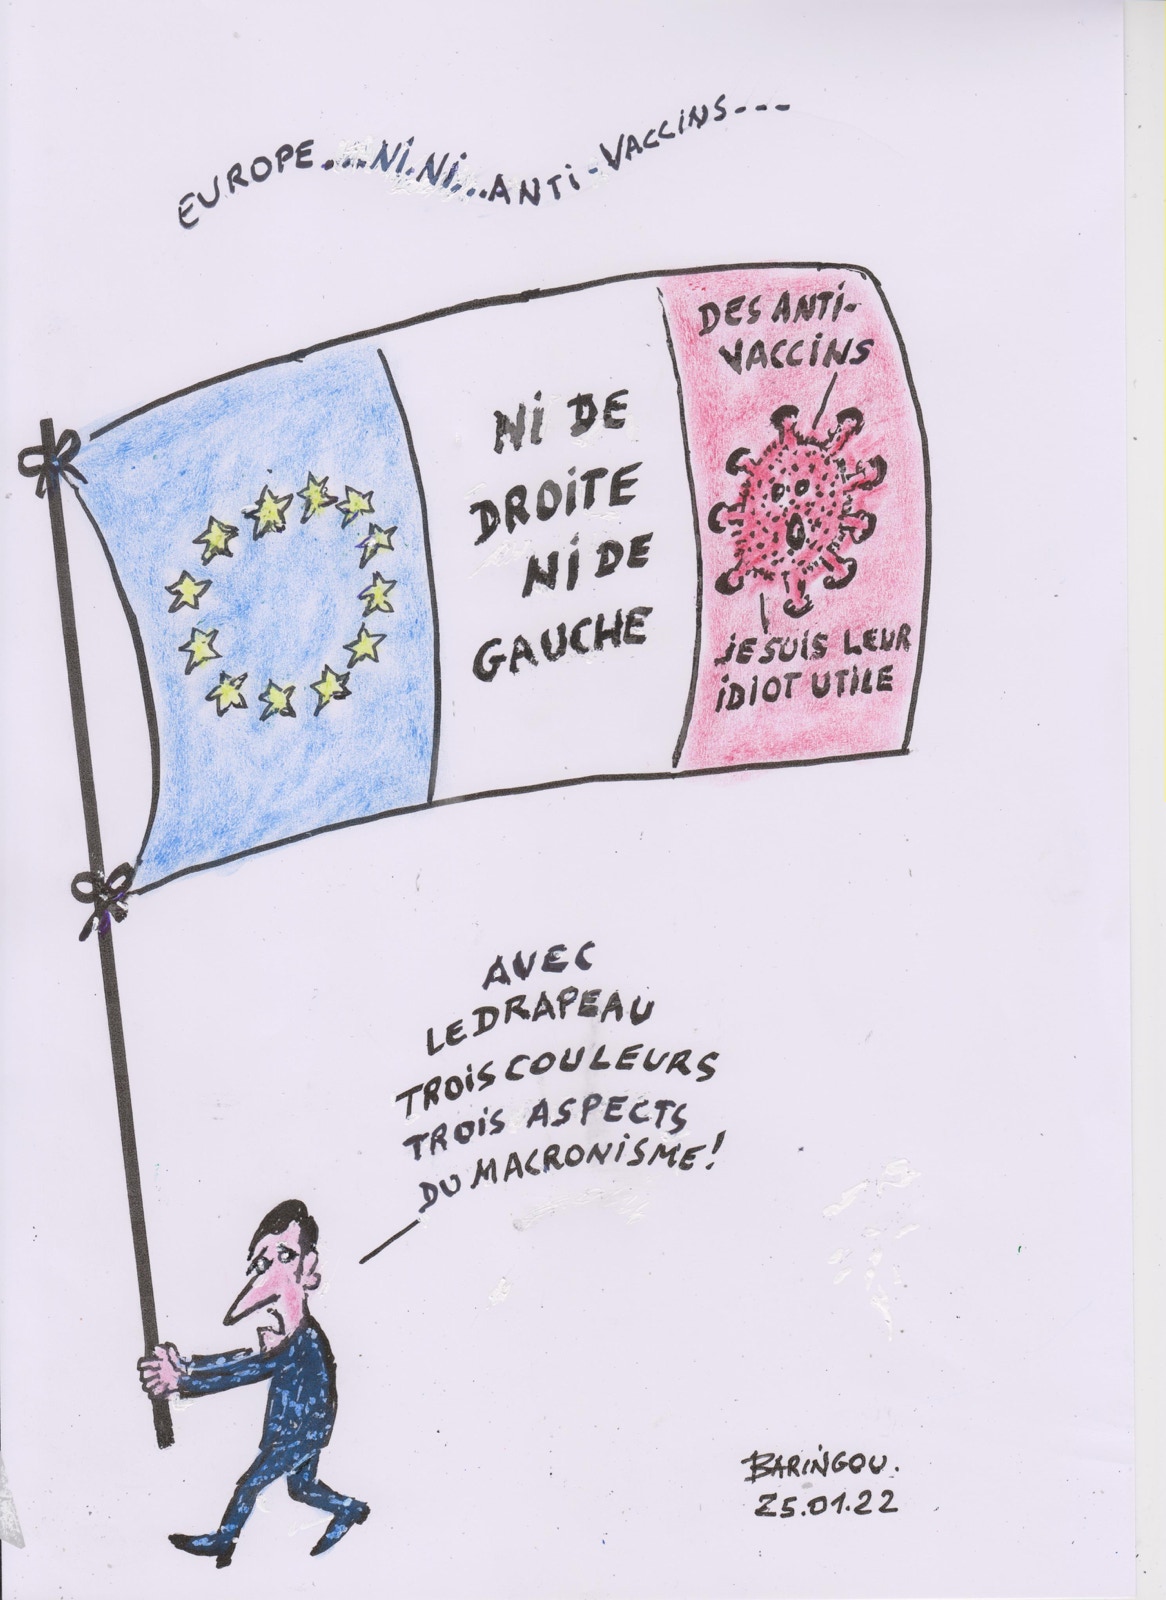 EUROPE...Ni.Ni...ANTi-VACCiNS---
DES ANTi-
VACCiNS
Ni DE
DROiTE
Ni DE
GAUCHE
JE SUiS LEUR
iDiOT UTiLE
AVEC
LE DRAPEAU
TROiS COULEURS
TROiS ASPECTS
DU MACRONiSME!
BARiNGOU.
25.01.22